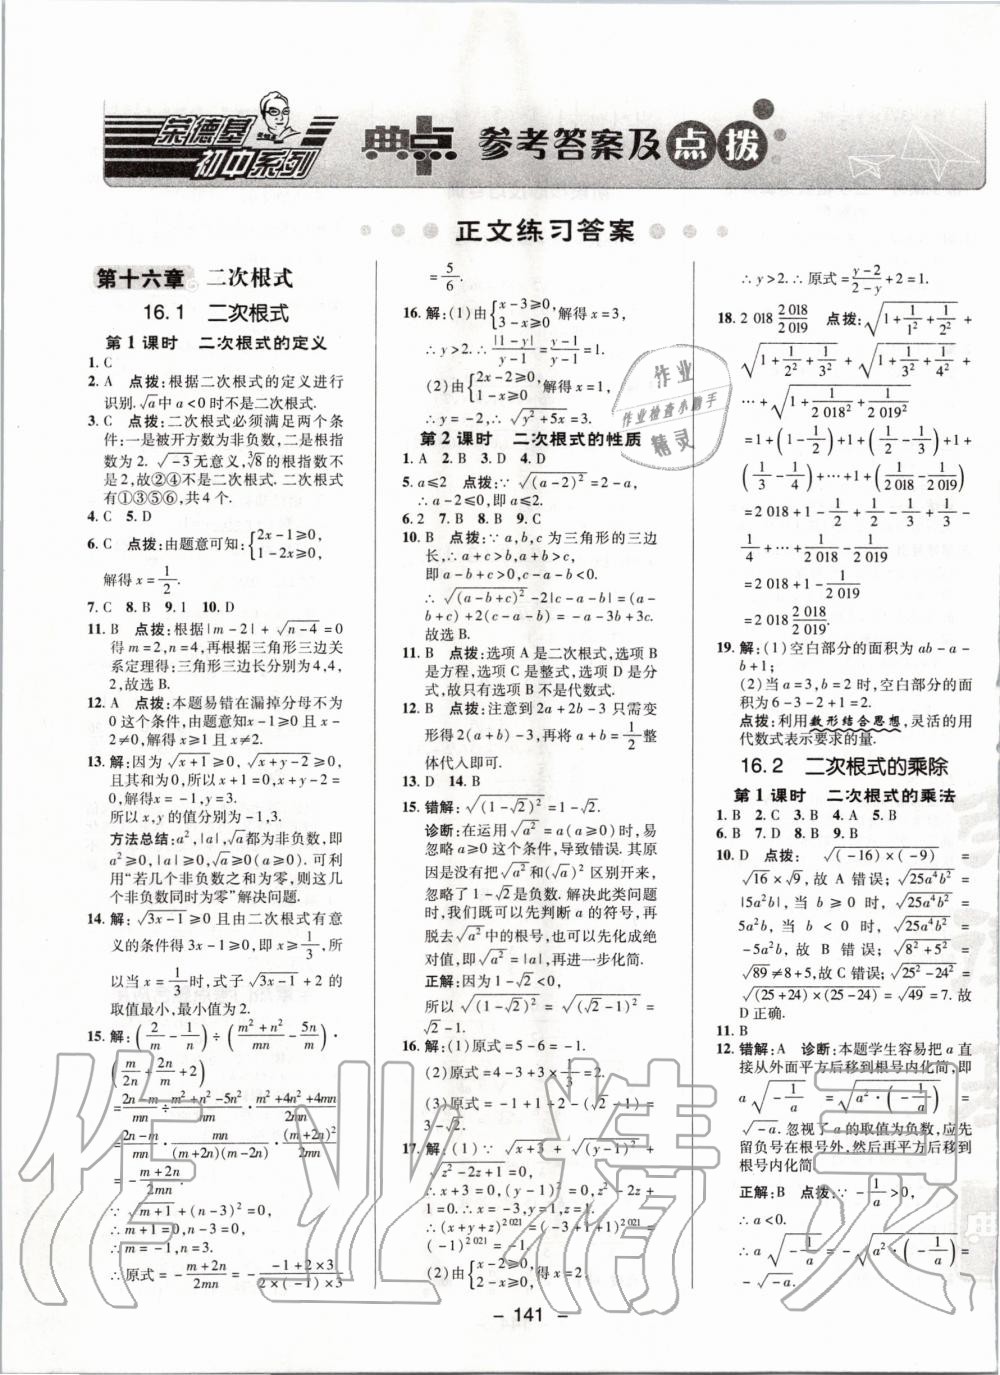 荣德基
初中系列
典点 参考答案及点拨
正文练习答案
第十六章 二次根式
16.1 二次根式
第1课时 二次根式的定义
1. C
2. A 点拨:根据二次根式的定义进行
识别.√a中a<0时不是二次根式.
3. C 点拨:二次根式必须满足两个条
件:一是被开方数为非负数,二是根指
数为2. √-3无意义,³√8的根指数不
是2,故②④不是二次根式. 二次根式
有①③⑤⑥,共4个.
4. C 5. D
6. C 点拨:由题意可知:{2x-1≥0, 1-2x≥0,
解得x=1/2.
7. C 8. B 9. 1 10. D
11. B 点拨:根据|m-2|+√(n-4)=0
得m=2,n=4,再根据三角形三边关
系定理得:三角形三边长分别为4,4,
2,故选B.
12. A 点拨:本题易错在漏掉分母不为
0这个条件,由题意知x-1≥0且x-
2≠0,解得x≥1且x≠2.
13. 解:因为√(x+1)≥0,√(x+y-2)≥0,
且其和为0,所以x+1=0,x+y-2=0,
解得x=-1,y=3.
所以x,y的值分别为-1,3.
方法总结:a²,|a|,√a都为非负数,即
a²≥0,|a|≥0,√a≥0(a≥0). 可利
用“若几个非负数之和为零,则这几
个非负数同时为零”解决问题.
14. 解:√(3x-1)≥0且由二次根式有意
义的条件得3x-1≥0,即x≥1/3,所
以当x=1/3时,式子√(3x-1)+2的
取值最小,最小值为2.
15. 解:(2/m-1/n)÷((m²+n²)/mn-5n/m)·
(m/2n+2n/m+2)
=(2n-m)/mn÷(m²+n²-5n²)/mn·(m²+4n²+4mn)/2mn
=(2n-m)/mn·mn/((m+2n)(m-2n))·(m+2n)²/2mn
=-(m+2n)/2mn.
∵√(m+1)+(n-3)²=0,
∴m+1=0,n-3=0.
∴m=-1,n=3.
∴原式=-(m+2n)/2mn=-(-1+2×3)/(2×(-1)×3)
=5/6.
16. 解:(1)由{x-3≥0, 3-x≥0,解得x=3,
∴y>2.∴|1-y|/(y-1)=(y-1)/(y-1)=1.
(2)由{2x-2≥0, 1-x≥0,解得x=1,
∴y=-2,∴√(y²+5x)=3.
第2课时 二次根式的性质
1. A 2. B 3. D 4. D
5. a≤2 点拨:∵√((a-2)²)=2-a,
∴a-2≤0,即a≤2.
6. 2 7. B 8. B 9. C
10. B 点拨:∵a,b,c为三角形的三边
长,∴a+c>b,a+b>c,
即a-b+c>0,c-a-b<0.
∴√((a-b+c)²)-2|c-a-b|=(a-
b+c)+2(c-a-b)=-a-3b+3c.
故选B.
11. B 点拨:选项A是二次根式,选项B
是方程,选项C是整式,选项D是分
式,所以选项B不是代数式.
12. B 点拨:注意到2a+2b-3只需变
形得2(a+b)-3,再将a+b=1/2整
体代入即可.
13. D 14. B
15. 错解:√((1-√2)²)=1-√2.
诊断:在运用√(a²)=a(a≥0)时,易
忽略a≥0这个条件,导致错误. 因
此,要注意√(a²)和(√a)²区别开来,
忽略了1-√2是负数. 解决此类问题
时,我们既可以先判断a的符号,再
脱去√(a²)中的根号,也可以先化成绝
对值,即√(a²)=|a|,再进一步化简.
正解:因为1-√2<0,
所以√((1-√2)²)=√((√2-1)²)=
√2-1.
16. 解:(1)原式=5-6=-1.
(2)原式=4-3+3×1/3=2.
(3)原式=-1+1+2-(√2-1)=
3-√2.
17. 解:(1)∵√(x+3)+√((y-1)²)+
√(z²-2z+1)=0,
∴x+3=0,(y-1)²=0,z²-2z+1=
0.∴x=-3,y=1,z=1.
∴(x+y+z)²⁰²¹=(-3+1+1)²⁰²¹=
(-1)²⁰²¹=-1.
(2)由{x-2≥0, 2-x≥0,得x=2.
∴y>2.∴原式=(y-2)/(2-y)+2=1.
18. 2 018 2 018/2 019 点拨:√(1+1/1²+1/2²)+
√(1+1/2²+1/3²)+√(1+1/3²+1/4²)+
…+√(1+1/2 018²+1/2 019²)
=1+(1-1/2)+1+(1/2-1/3)+1+
(1/3-1/4)+…+1+(1/2 018-1/2 019)
=2 018+1-1/2+1/2-1/3+1/3-
1/4+…+1/2 018-1/2 019
=2 018+1-1/2 019
=2 018 2 018/2 019.
19. 解:(1)空白部分的面积为ab-a-
b+1;
(2)当a=3,b=2时,空白部分的面
积为6-3-2+1=2.
点拨:利用数形结合思想,灵活的用
代数式表示要求的量.
16.2 二次根式的乘除
第1课时 二次根式的乘法
1. B 2. C 3. B 4. A 5. B
6. B 7. D 8. B 9. B
10. D 点拨:√((-16)×(-9))=
√16×√9,故A错误;√(25a⁴b²)=
|5a²b|,当b≥0时,√(25a⁴b²)=
5a²b,当b<0时,√(25a⁴b²)=
-5a²b,故B错误;√(8²+5²)=
√89≠8+5,故C错误;√(25²-24²)=
√((25+24)×(25-24))=√49=7. 故
D正确.
11. B
12. 错解:A 诊断:本题学生容易把a直
接从外面平方后移到根号内化简,即
a√(-1/a)=√(a²·(-1/a))=
√(-a). 忽视了a的取值为负数,应先
留负号在根号外,然后再平方后移到
根号内化简.
正解:B 点拨:∵-1/a>0,
∴a<0.
∴a√(-1/a)=-√(a²·(-1/a))=
-√(-a).
- 141 -
作业
作业检查小助手
精灵
作业精灵
典